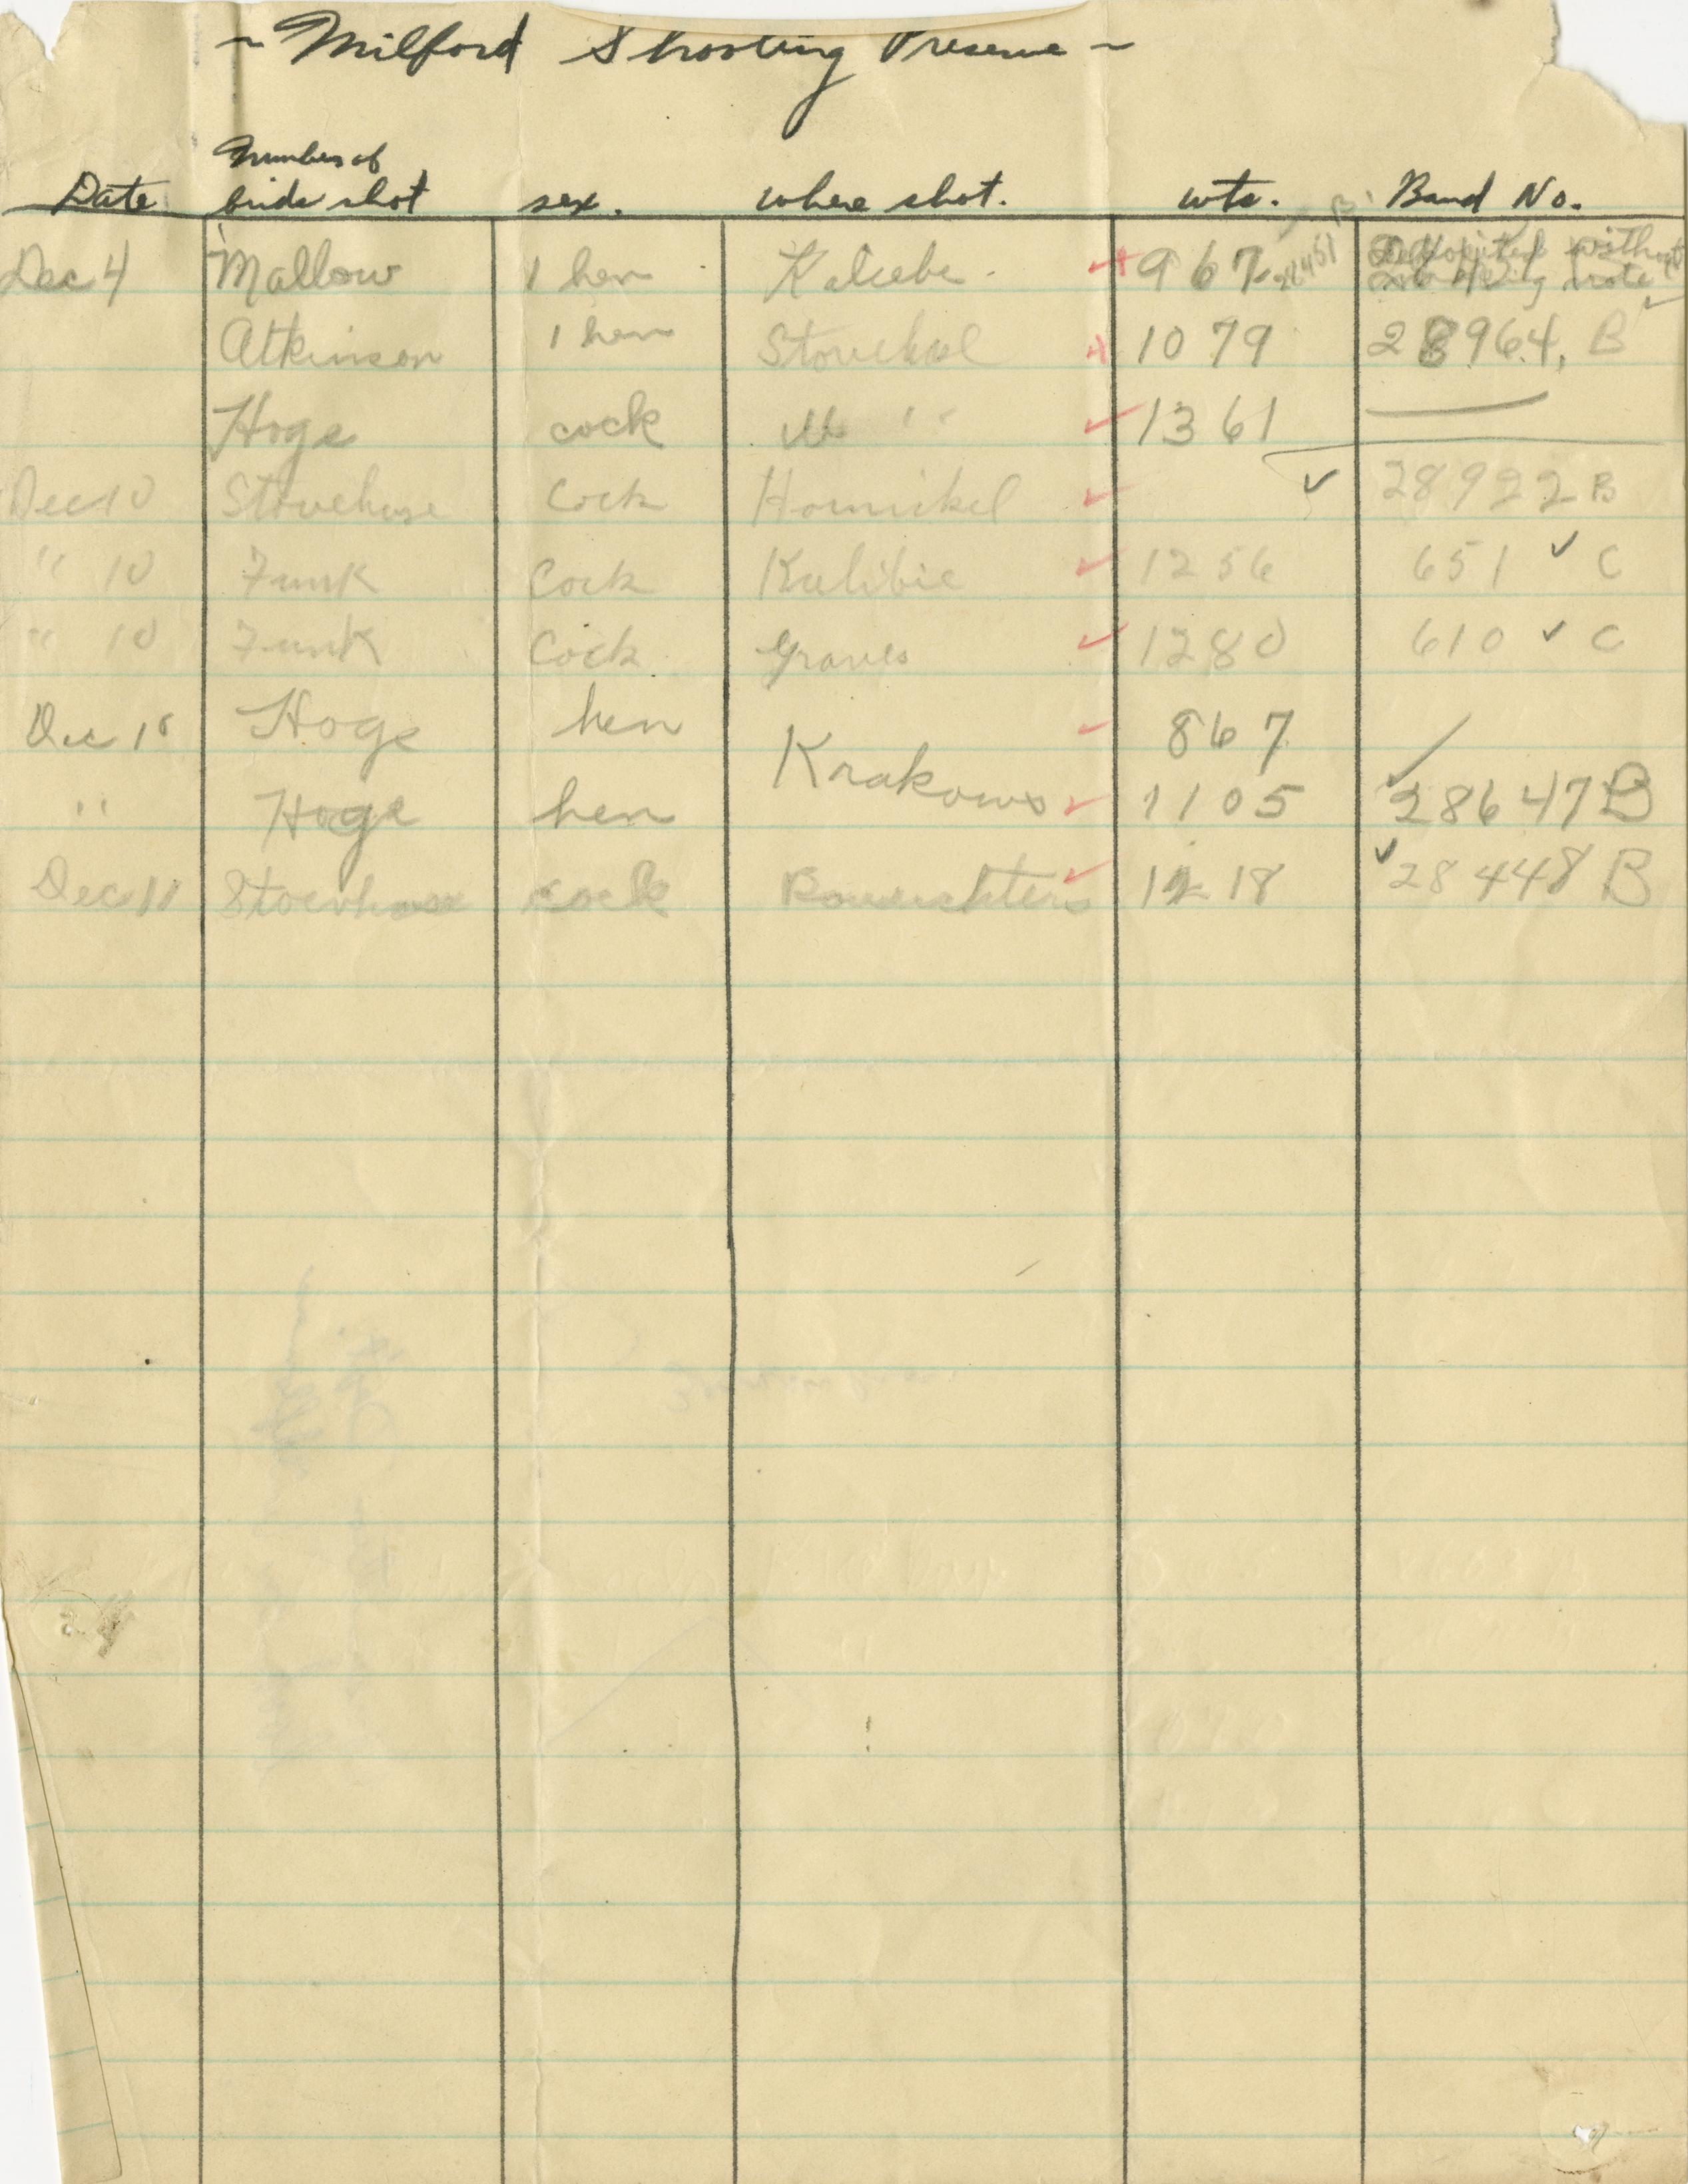 ~ Milford Shooting Preserve ~
Number of
Date birds shot sex. where shot. wts. Band No.
Dec 4 Mallow 1 hen 967 28451 B without
note
Atkinson 1 hen 1079 28964, B
Hoge cock " " 1361
Dec 10 Stovehuse Cock Hornikel 28922 B
" 10 Funk Cock Kulibie 1256 651 C
" 10 Funk Cock Graves 1280 610 C
Dec 10 Hoge hen 867
Krakows
" Hoge hen 1105 28647 B
Dec 11 cock 1218 28448 B